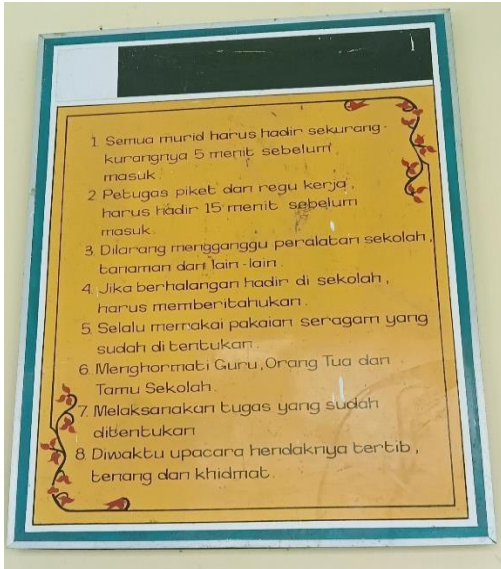 1. Semua murid harus hadir sekurang-
kurangnya 5 menit sebelum
masuk.
2. Petugas piket dan regu kerja,
harus hadir 15 menit sebelum
masuk.
3. Dilarang mengganggu peralatan sekolah,
tanaman dan lain-lain.
4. Jika berhalangan hadir di sekolah,
harus memberitahukan.
5. Selalu memakai pakaian seragam yang
sudah di tentukan.
6. Menghormati Guru, Orang Tua dan
Tamu Sekolah.
7. Melaksanakan tugas yang sudah
ditentukan
8. Diwaktu upacara hendaknya tertib,
tenang dan khidmat.